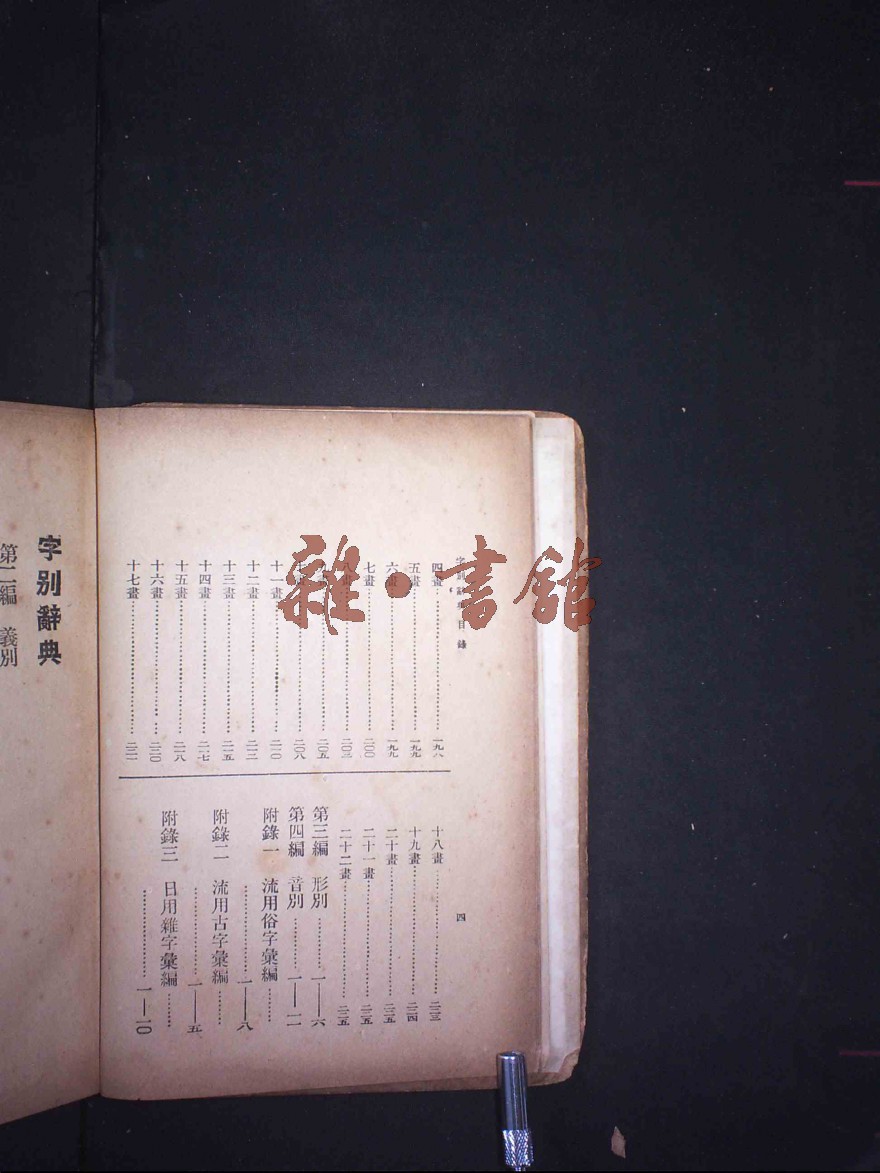 字別辭典目錄
四
四畫……一九八
五畫……一九九
六畫……一九九
七畫……二〇〇
八畫……二〇三
二〇五
十畫……二〇八
十一畫……二一〇
十二畫……二一三
十三畫……二一五
十四畫……二一七
十五畫……二一八
十六畫……二二〇
十七畫……二二一
十八畫……二二三
十九畫……二二四
二十畫……二二五
二十一畫……二二五
二十二畫……二二五
第三編 形別……一—六
第四編 音別……一—一一
附錄一 流用俗字彙編……
……一—八
附錄二 流用古字彙編……
……一—五
附錄三 日用雜字彙編……
……一—一〇
字別辭典
第二編 義別
雜·書館